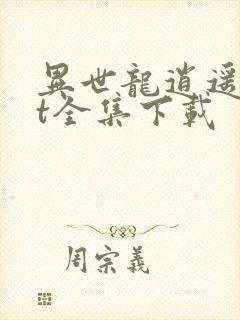 異世龍逍遥
t全集下載
周宗義